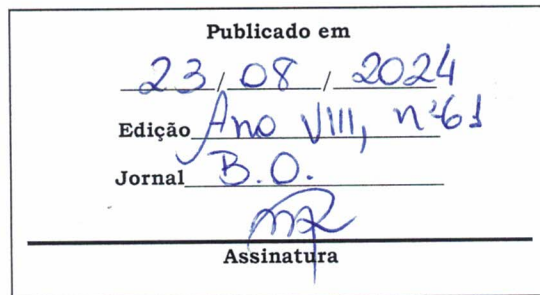 Publicado em
23 / 08 / 2024
Edição Ano VIII, nº 61
Jornal B.O.
Assinatura